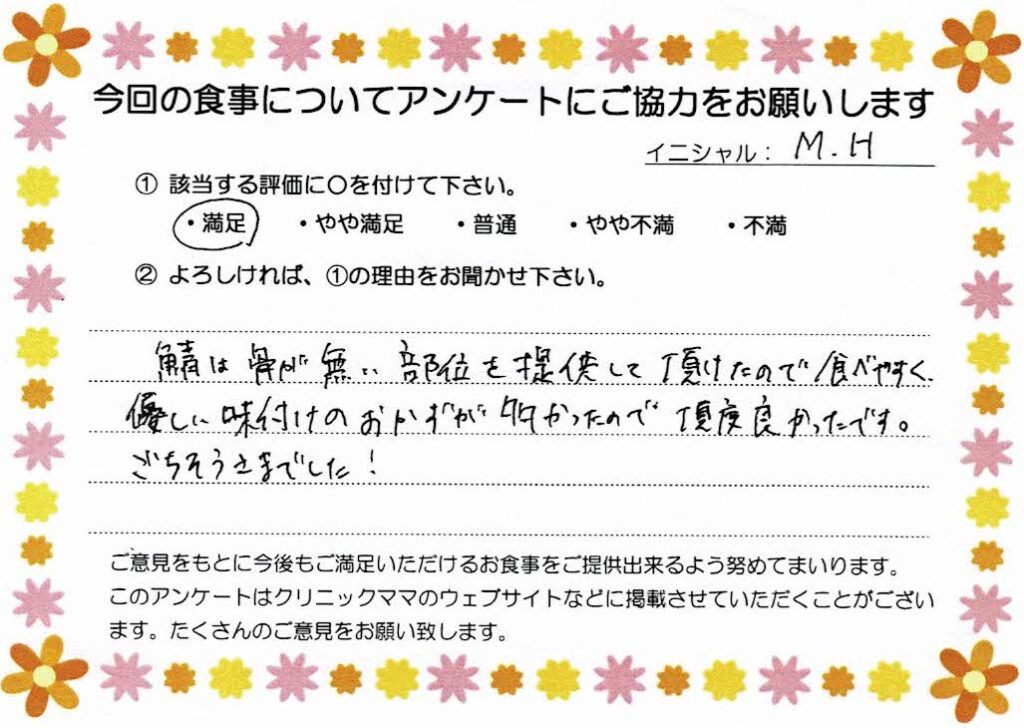 今回の食事についてアンケートにご協力をお願いします
イニシャル： M.H
① 該当する評価に〇を付けて下さい。
・満足 ・やや満足 ・普通 ・やや不満 ・不満
② よろしければ、①の理由をお聞かせ下さい。
鯖は骨が無い部位を提供して頂けたので食べやすく、
優しい味付けのおかずが多かったので頂度良かったです。
ごちそうさまでした！
ご意見をもとに今後もご満足いただけるお食事をご提供出来るよう努めてまいります。
このアンケートはクリニックママのウェブサイトなどに掲載させていただくことがござい
ます。たくさんのご意見をお願い致します。